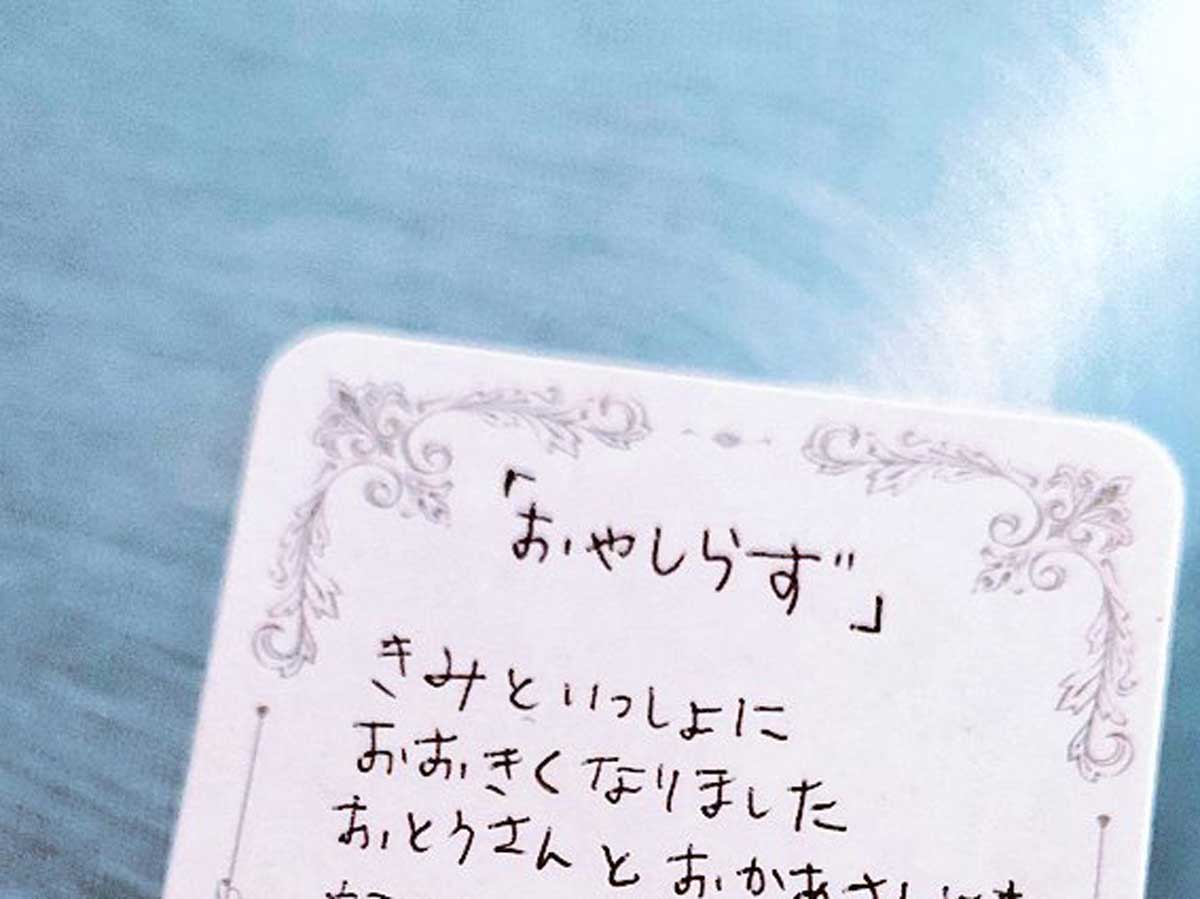 「おやしらず」
きみといっしょに
おおきくなりました
おとうさんとおかあさん